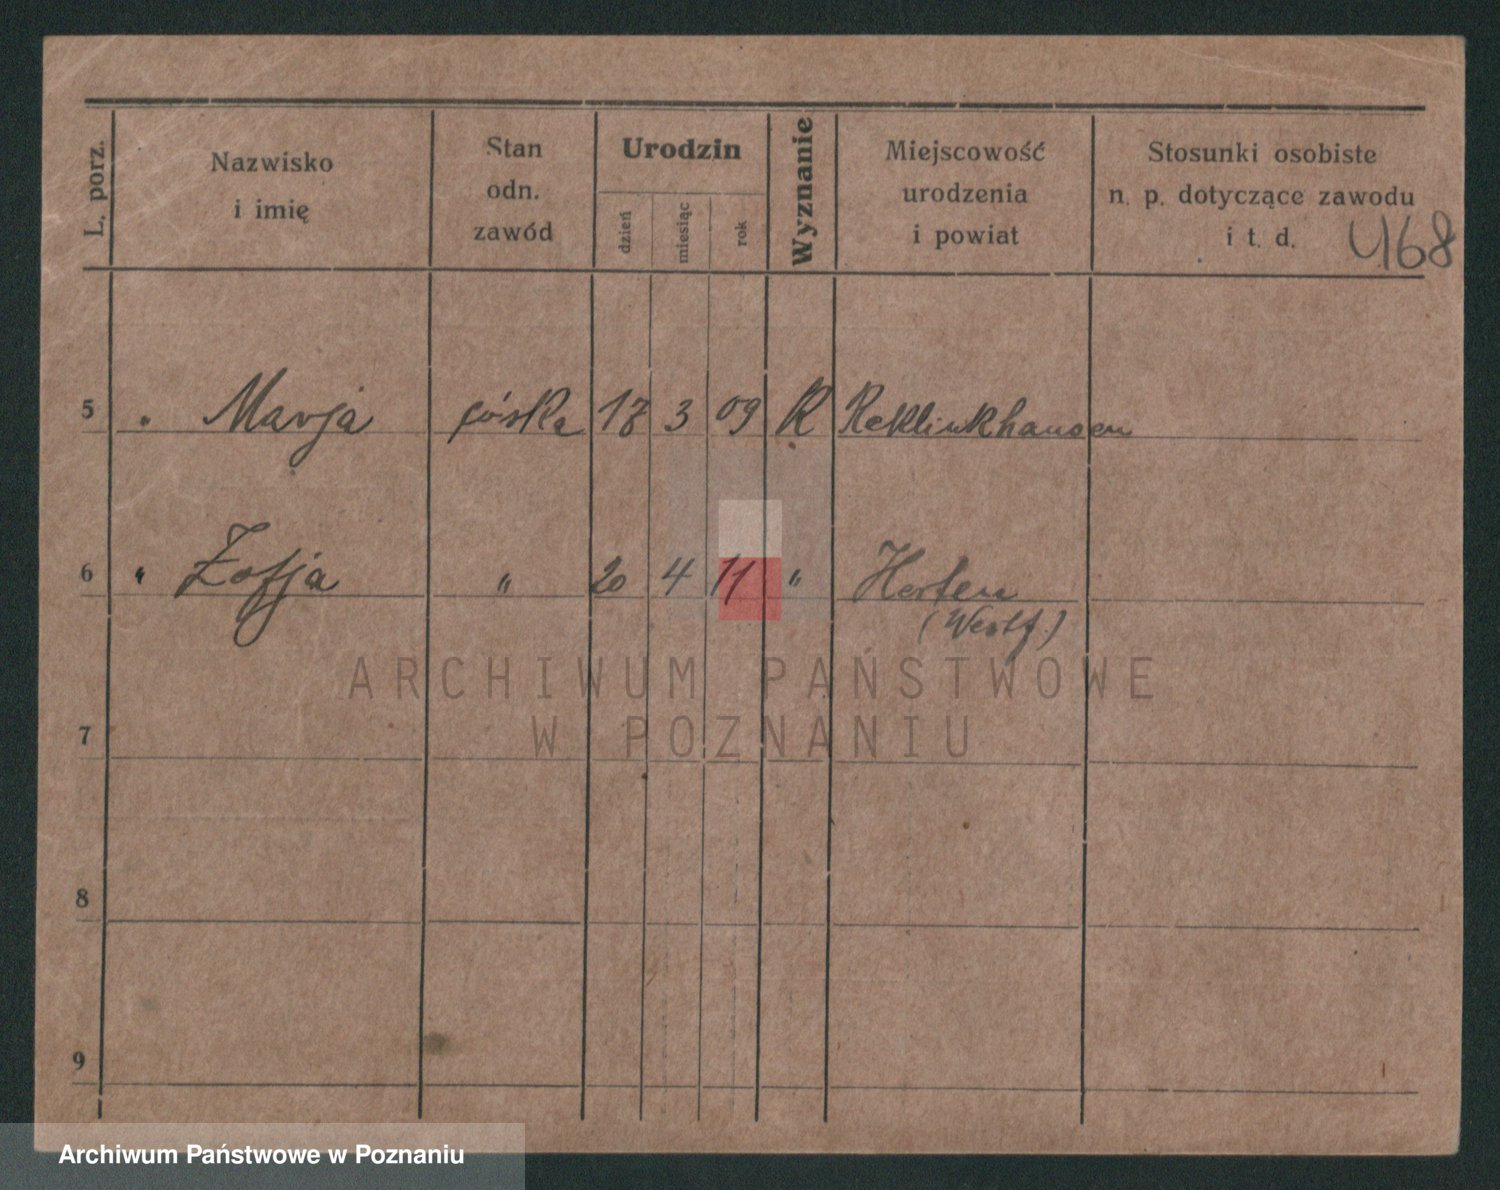 L. porz.
Nazwisko
i imię
Stan
odn.
zawód
Urodzin
dzień
miesiąc
rok
Wyznanie
Miejscowość
urodzenia
i powiat
Stosunki osobiste
n. p. dotyczące zawodu
i t. d.
468
5 " Marja córka 18 3 09 R Reklinkhausen
6 " Zofja " 20 4 11 " Herten
(Westf.)
ARCHIWUM PAŃSTWOWE
W POZNANIU
7
8
9
Archiwum Państwowe w Poznaniu